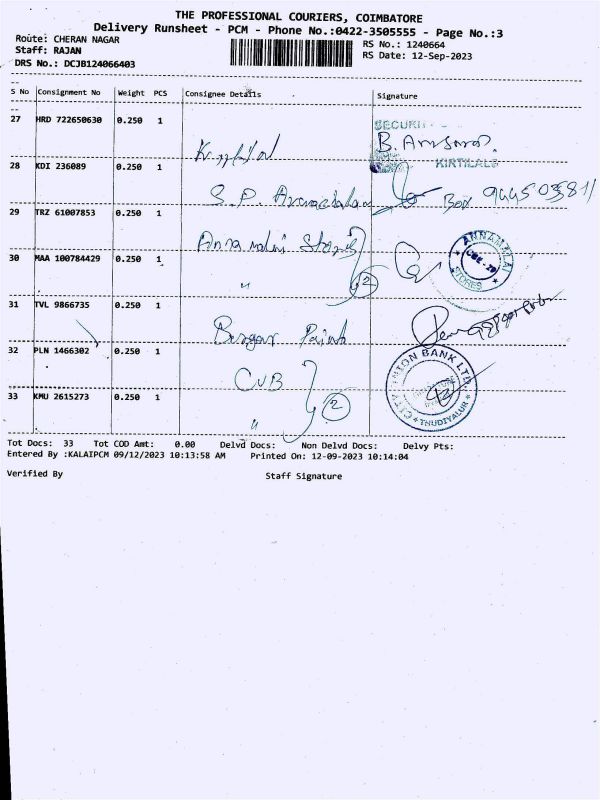 THE PROFESSIONAL COURIERS, COIMBATORE
Delivery Runsheet - PCM - Phone No.:0422-3505555 - Page No.:3
Route: CHERAN NAGAR
RS No.: 1240664
Staff: RAJAN
RS Date: 12-Sep-2023
DRS No.: DCJB124066403
S No Consignment No Weight PCS Consignee Details Signature
27 HRD 722650630 0.250 1
SECURI
KIRTILALS
28 KDI 236089 0.250 1 S. P. Arunachalam
29 TRZ 61007853 0.250 1 Annamalai Stores
ANNAMALAI
CBE-29
STORES
30 MAA 100784429 0.250 1 " 2
31 TVL 9866735 0.250 1 Berger Paints
32 PLN 1466302 0.250 1 CUB
CITY UNION BANK LTD
THUDIYALUR
33 KMU 2615273 0.250 1 " 2
Tot Docs: 33 Tot COD Amt: 0.00 Delvd Docs: Non Delvd Docs: Delvy Pts:
Entered By :KALAIPCM 09/12/2023 10:13:58 AM Printed On: 12-09-2023 10:14:04
Verified By Staff Signature